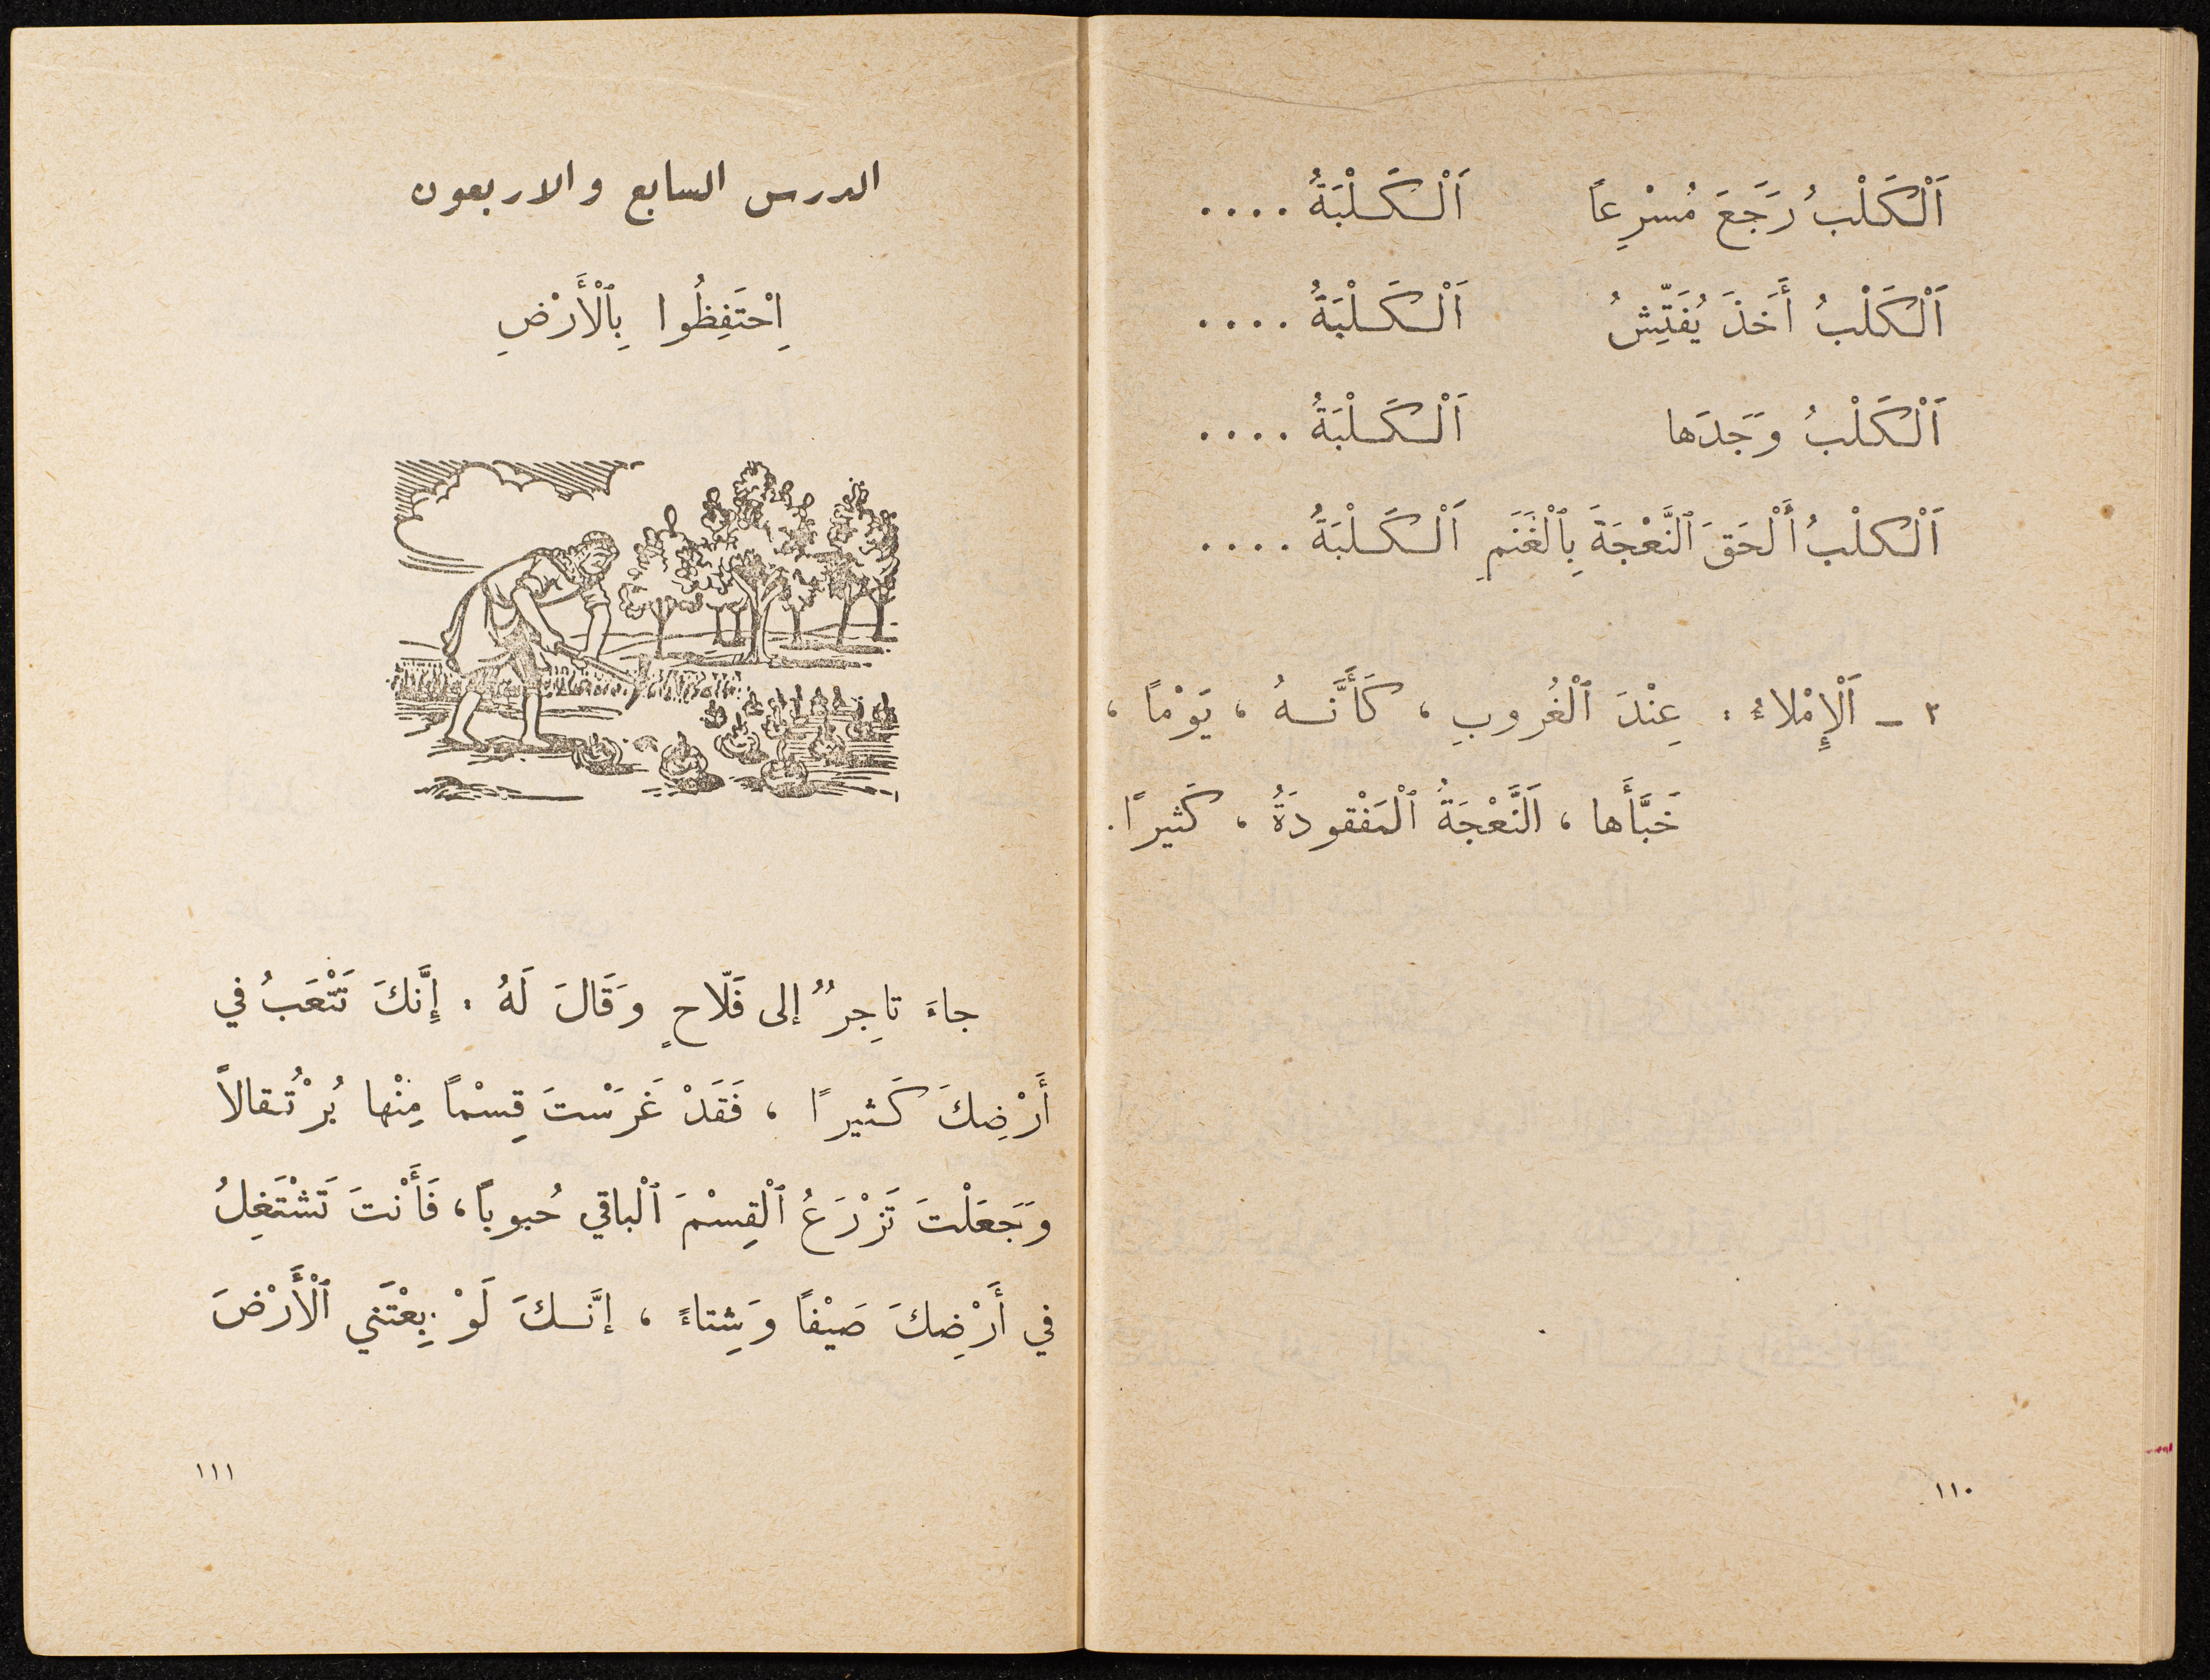 اَلْكَلْبُ رَجَعَ مُسْرِعاً اَلْكَلْبَةُ ....
اَلْكَلْبُ أَخَذَ يُفَتِّشُ اَلْكَلْبَةُ ....
اَلْكَلْبُ وَجَدَها اَلْكَلْبَةُ ....
اَلْكلْبُ أَلْحَقَ ٱلنَّعْجَةَ بِٱلْغَنَمِ اَلْكَلْبَةُ ....
٣ - اَلْإِمْلاءُ : عِنْدَ ٱلْغُروبِ ، كَأَنَّهُ ، يَوْمًا ،
خَبَّأَها ، اَلنَّعْجَةُ ٱلْمَفْقودَةُ ، كَثيرًا .
١١٠
الدرس السابع والاربعون
اِحْتَفِظُوا بِٱلْأَرْضِ
جاءَ تاجِرٌ إلى فَلّاحٍ وَقَالَ لَهُ : إِنَّكَ تَتْعَبُ في
أَرْضِكَ كَثيرًا ، فَقَدْ غَرَسْتَ قِسْمًا مِنْها بُرْتُقالاً
وَجَعَلْتَ تَزْرَعُ ٱلْقِسْمَ ٱلْباقي حُبوباً ، فَأَنْتَ تَشْتَغِلُ
في أَرْضِكَ صَيْفًا وَشِتاءً ، إنَّكَ لَوْ بِعْتَني ٱلْأَرْضَ
١١١